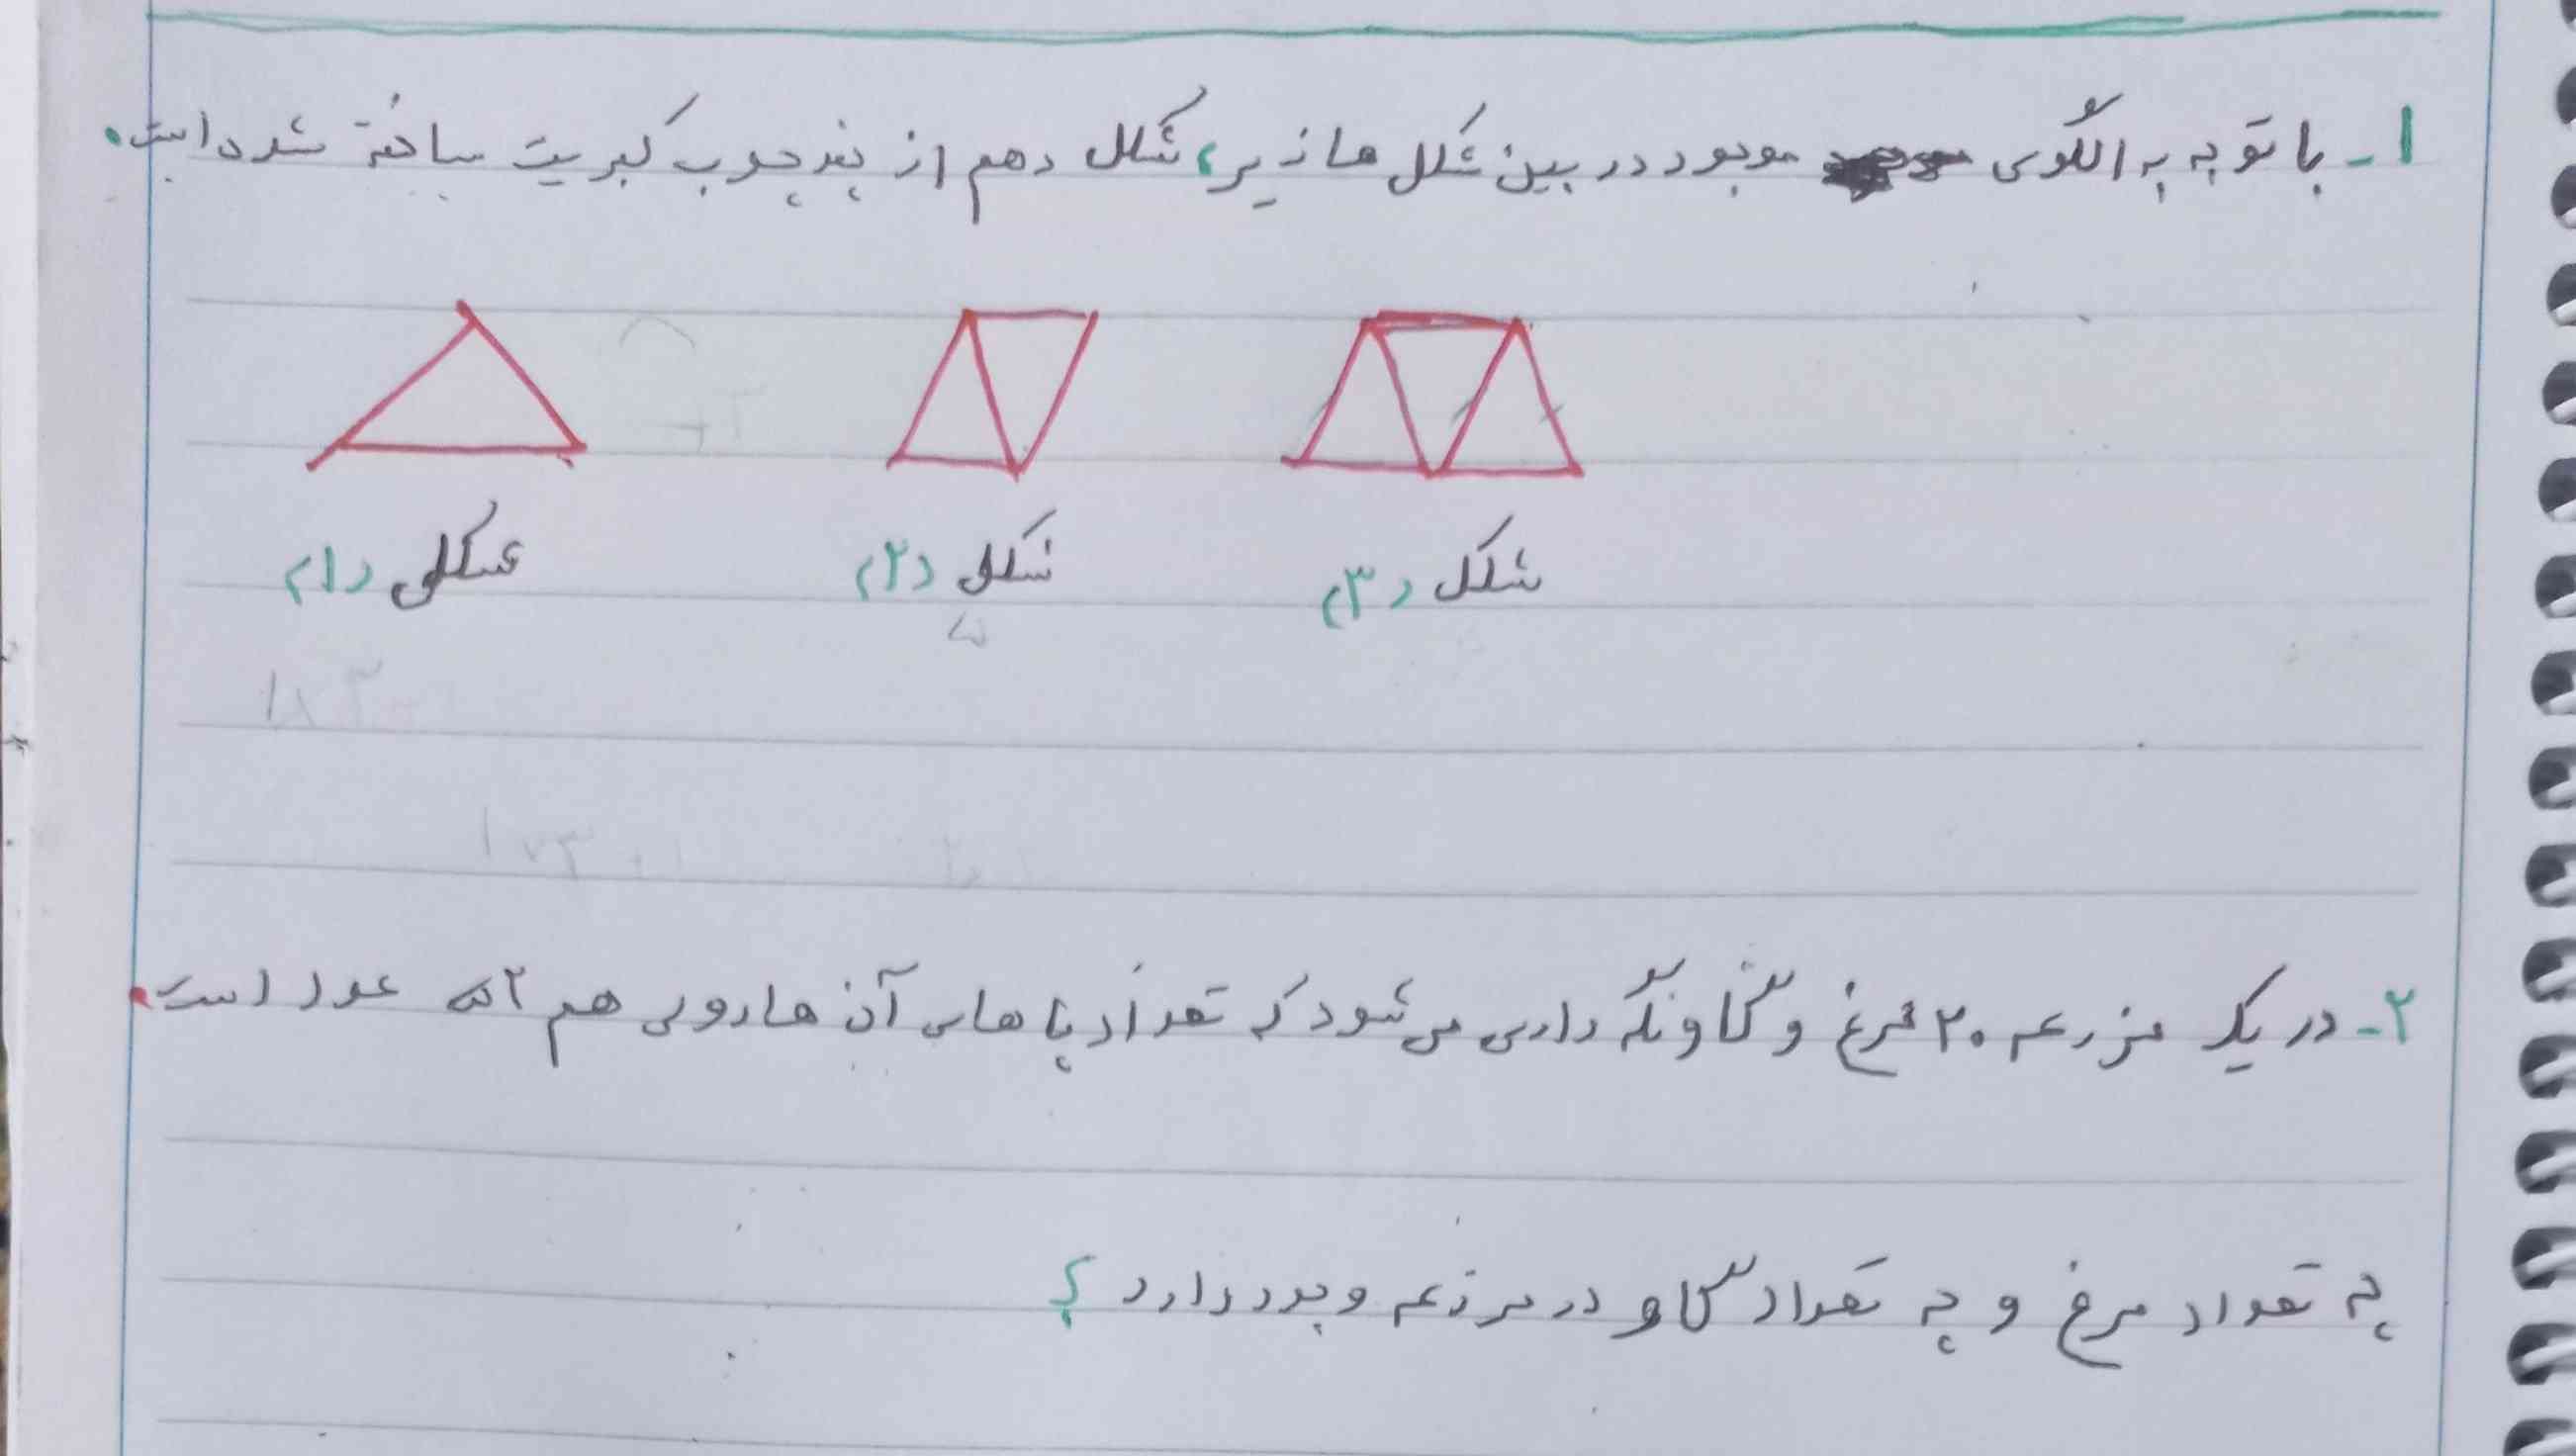 ۱- با توجه به الگوی موجود در بین شکل ها زیر، شکل دهم از چند چوب کبریت ساخته شده است.
شکل (۱) شکل (۲) شکل (۳)
۲- در یک مزرعه ۲۰ مرغ و گاو نگه داری می شود که تعداد پا های آن ها روی هم عدد است.
چه تعداد مرغ و چه تعداد گاو در مرزعه وجود دارد؟